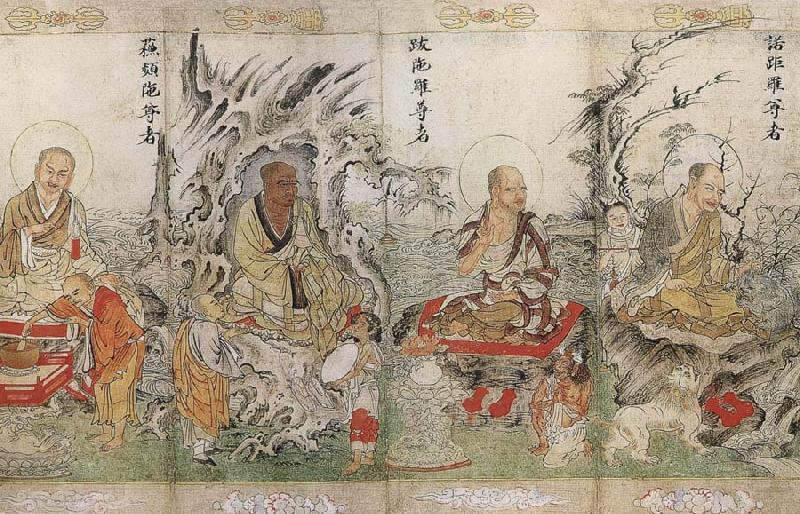 諾距羅尊者
跋陁羅尊者
蘓頻陁尊者